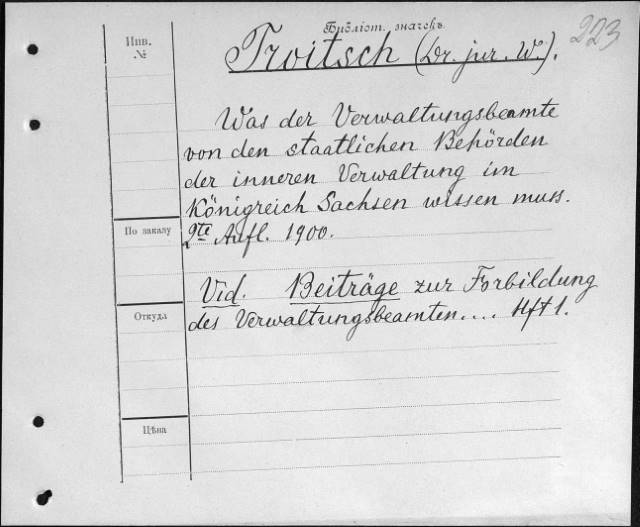 Библіот. значекъ
223
Инв.
№
Troitsch (Dr. jur. W.).
Was der Verwaltungsbeamte
von den staatlichen Behörden
der inneren Verwaltung im
Königreich Sachsen wissen muss.
2te Aufl. 1900.
По заказу
Vid. Beiträge zur Forbildung
des Verwaltungsbeamten.... Hft 1.
Откуда
Цѣна